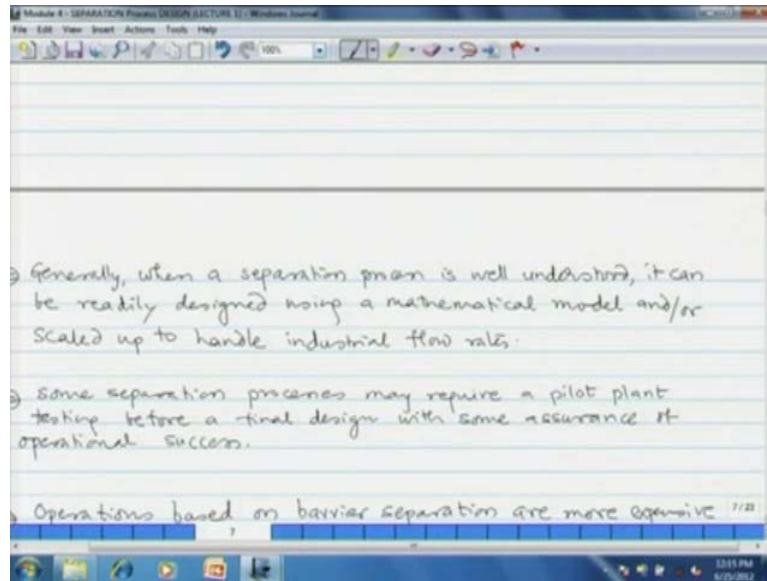 Module 4 - SEPARATION Process DESIGN (LECTURE 1) - Windows Journal
File Edit View Insert Actions Tools Help
100%
Generally, when a separation process is well understood, it can
be readily designed using a mathematical model and/or
scaled up to handle industrial flow rates.
some separation processes may require a pilot plant
testing before a final design with some assurance of
operational success.
Operations based on barrier separation are more expensive
7/22
7
12:15 PM
6/25/2012